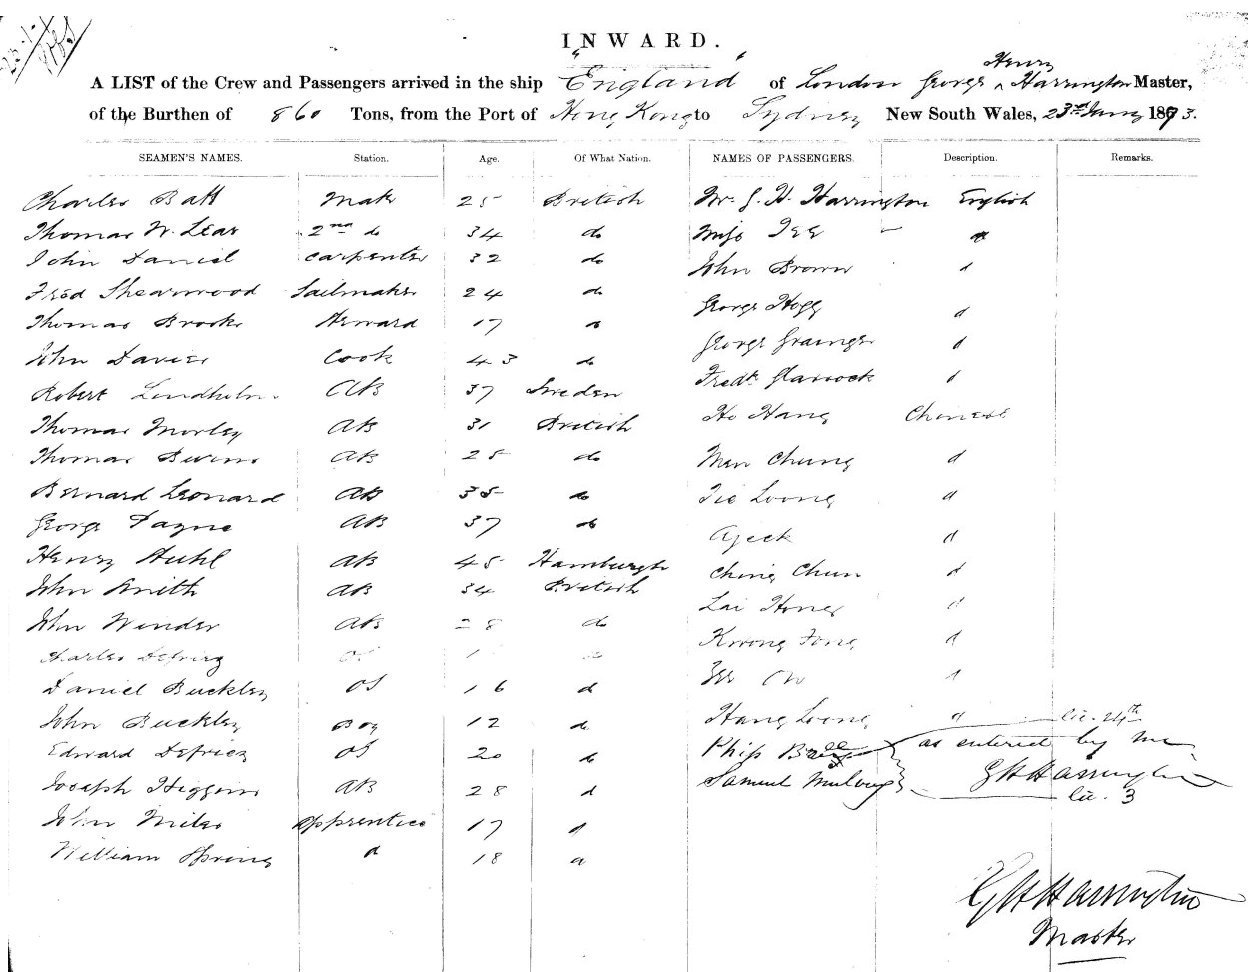 INWARD.
A LIST of the Crew and Passengers arrived in the ship England of London George Henry Harrington Master,
of the Burthen of 860 Tons, from the Port of Hong Kong to Sydney New South Wales, 23rd 1873.
SEAMEN'S NAMES. Station. Age. Of What Nation. NAMES OF PASSENGERS. Description. Remarks.
Charles Batt Mate 25 British Mrs G. H. Harrington English
Thomas W. Lear 2nd do 34 do Miss Lee
John Daniel Carpenter 32 do John Brown d
Fred Shearwood Sailmaker 24 do George Hogg d
Thomas Brooks Steward 17 do George Grainger d
John Davies Cook 43 do Fredk Glassock d
Robert Lindholm AB 37 Sweden Ho Hang Chinese
Thomas Morley AB 31 British
Thomas Bivens AB 25 do Men Chung d
Bernard Leonard AB 35 do Tie Loong d
George Payne AB 37 do Ajeck d
Henry Stuhl AB 45 Hamburgh Ching Chun d
John Smith AB 34 British Lai Hong d
John Winder AB 28 do Kwong Fong d
Charles Defriez OS
Daniel Buckley OS 16 d
John Buckley Boy 12 do Hang Loong d lic. 24th
Edward Defriez OS 20 do Philp as entered by me
Joseph Higgins AB 28 d Samuel GHHarrington
lic. 3
John Miles Apprentice 17 d
William Spring d 18 d
GHHarrington
Master